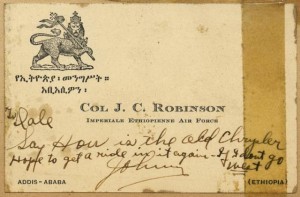 የኢትዮጵያ፡ መንግሥት።
አቪአሲዎን፡
COL J. C. ROBINSON
IMPERIALE ETHIOPIENNE AIR FORCE
To Dale
Say How is the old Chrysler
Hope to get a ride in it again - if I dont go
west
Johnny
ADDIS-ABABA
(ETHIOPIA)